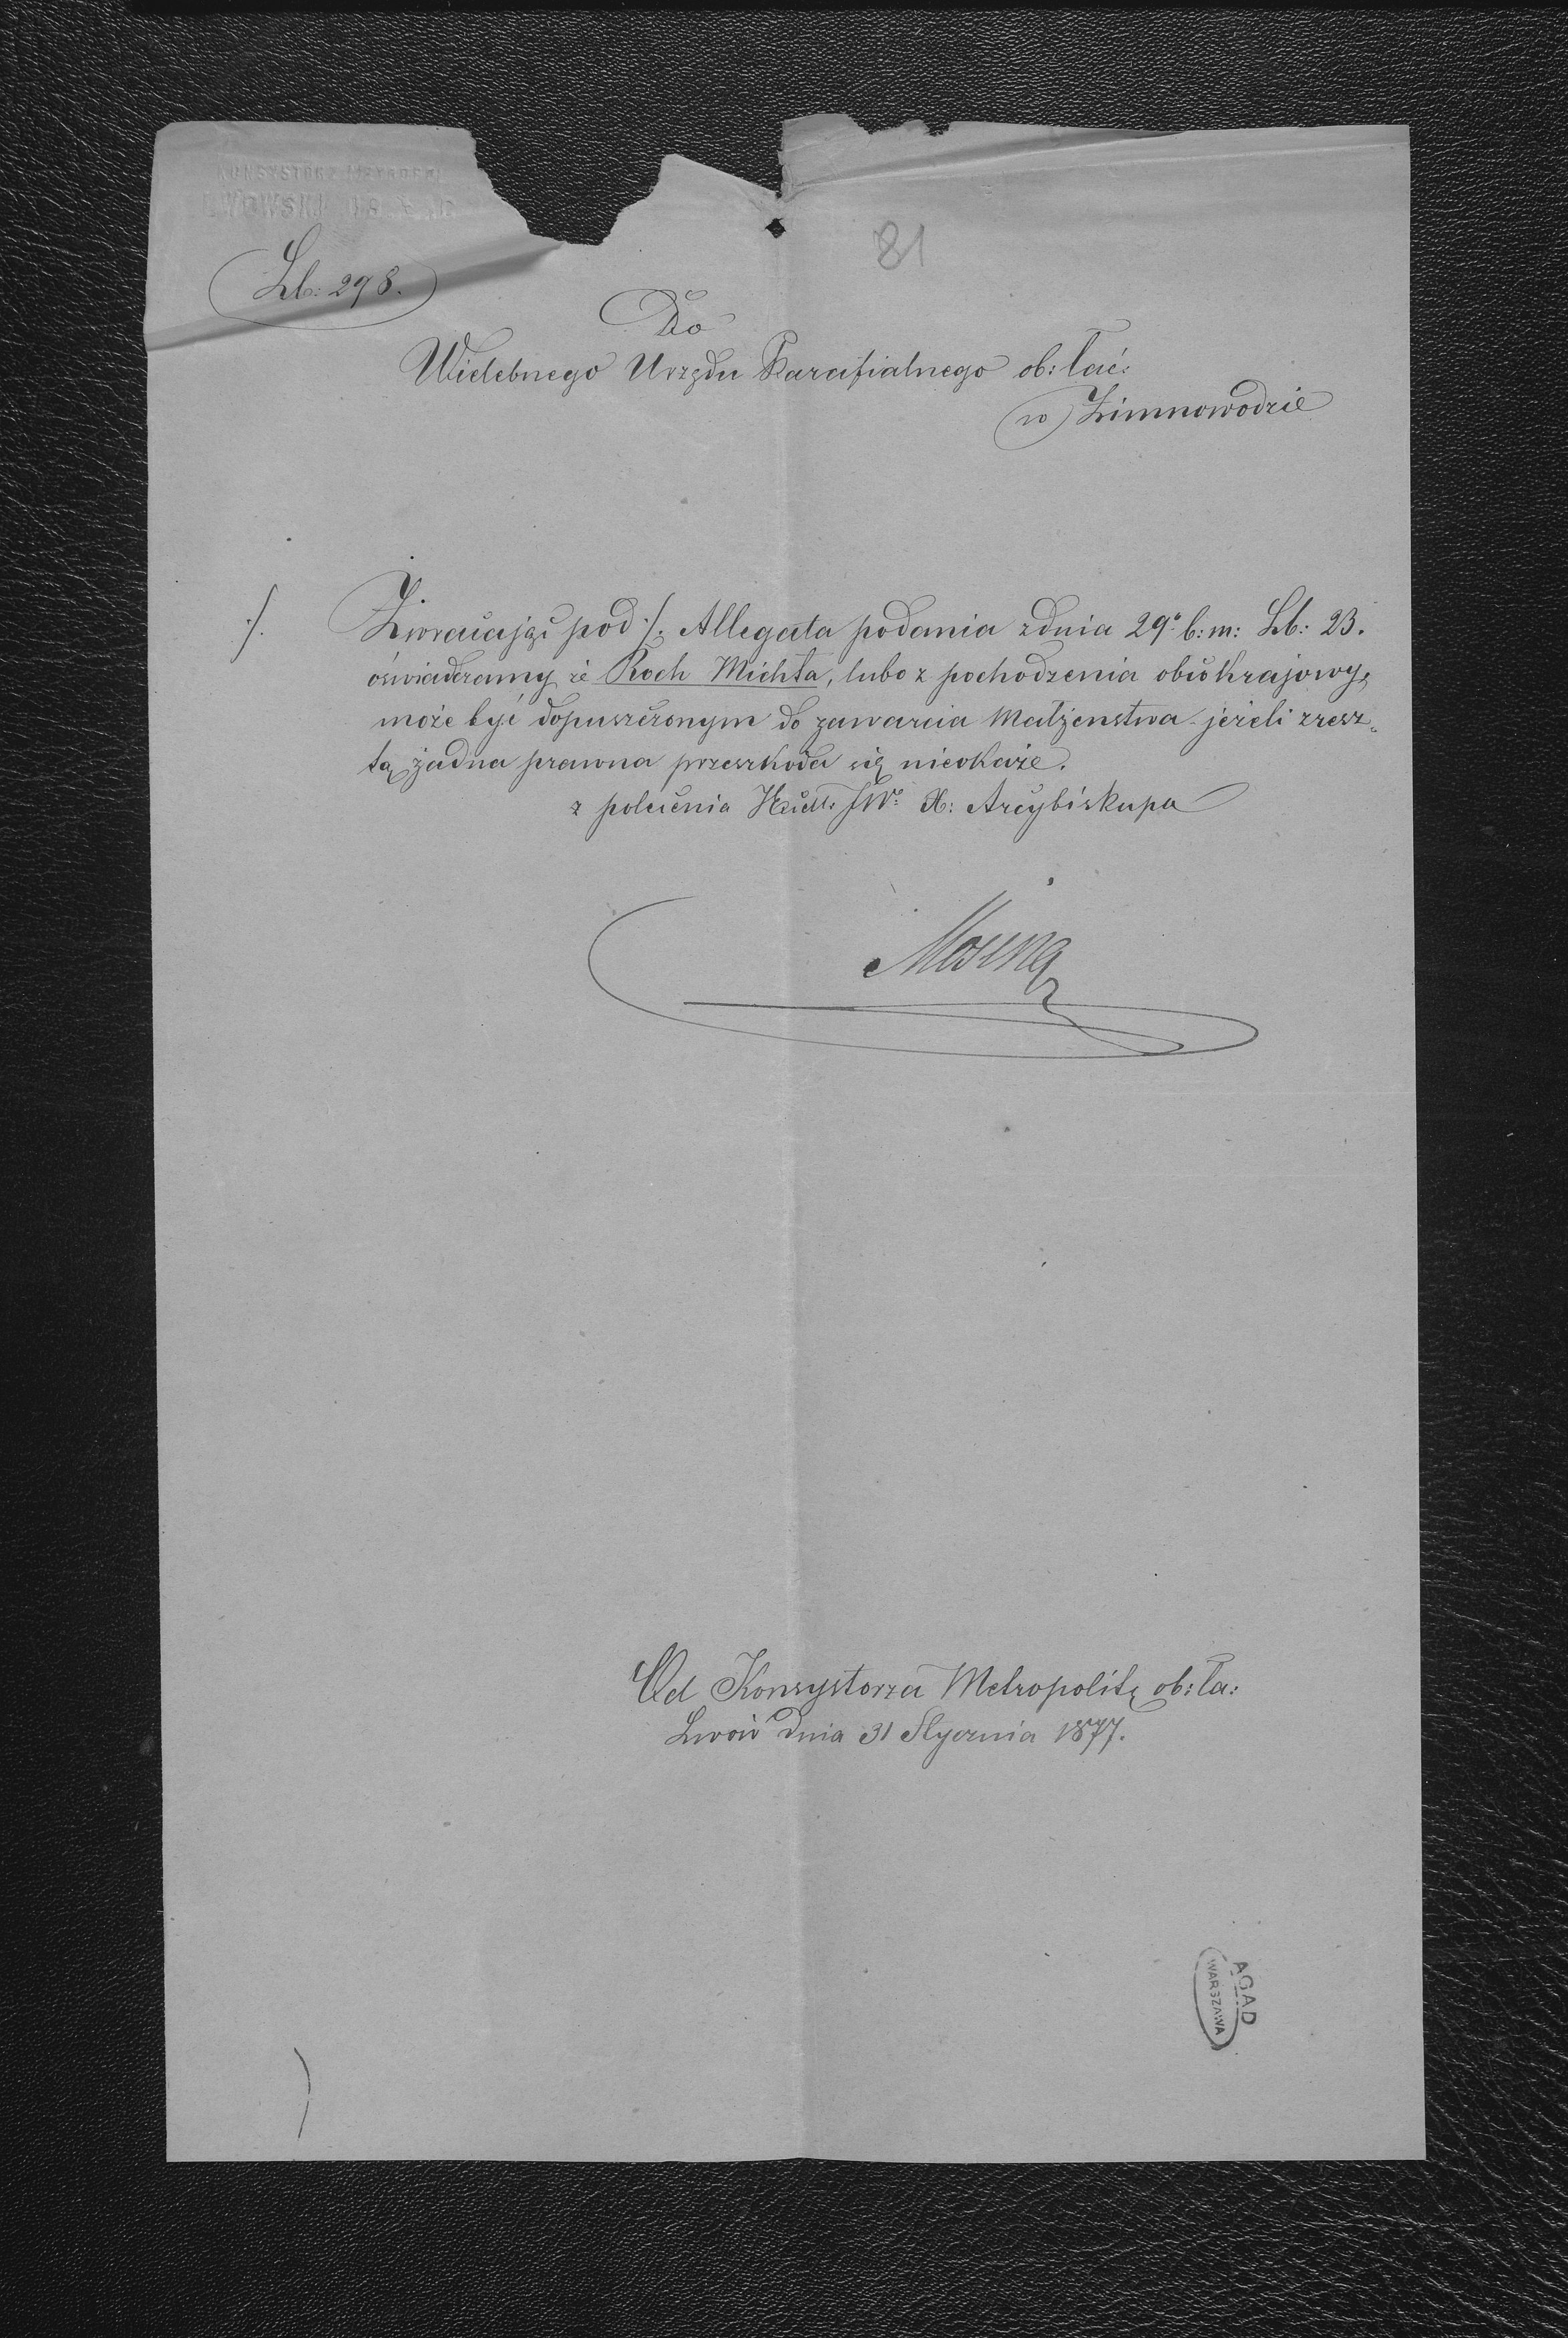 KONSYSTORZ METROPOL
LWOWSKI
81
Lb: 298.
Do
Wielebnego Urzędu Parafialnego ob: łać:
w Zimnowodzie
./. Zwracając pod ./. Allegata podania z dnia 29º b: m: Lb: 23.
oświadczamy że Roch Michta, lubo z pochodzenia obcokrajowy,
może być dopuszczonym do zawarcia Małżenstwa jeżeli zresz„
tą żadna prawna przeszkoda się nieokaże.
z polecenia JWº X: Arcybiskupa
Od Konsystorza Metropolit ob: ła:
Lwów dnia 31 Stycznia 1877.
AGAD
WARSZAWA